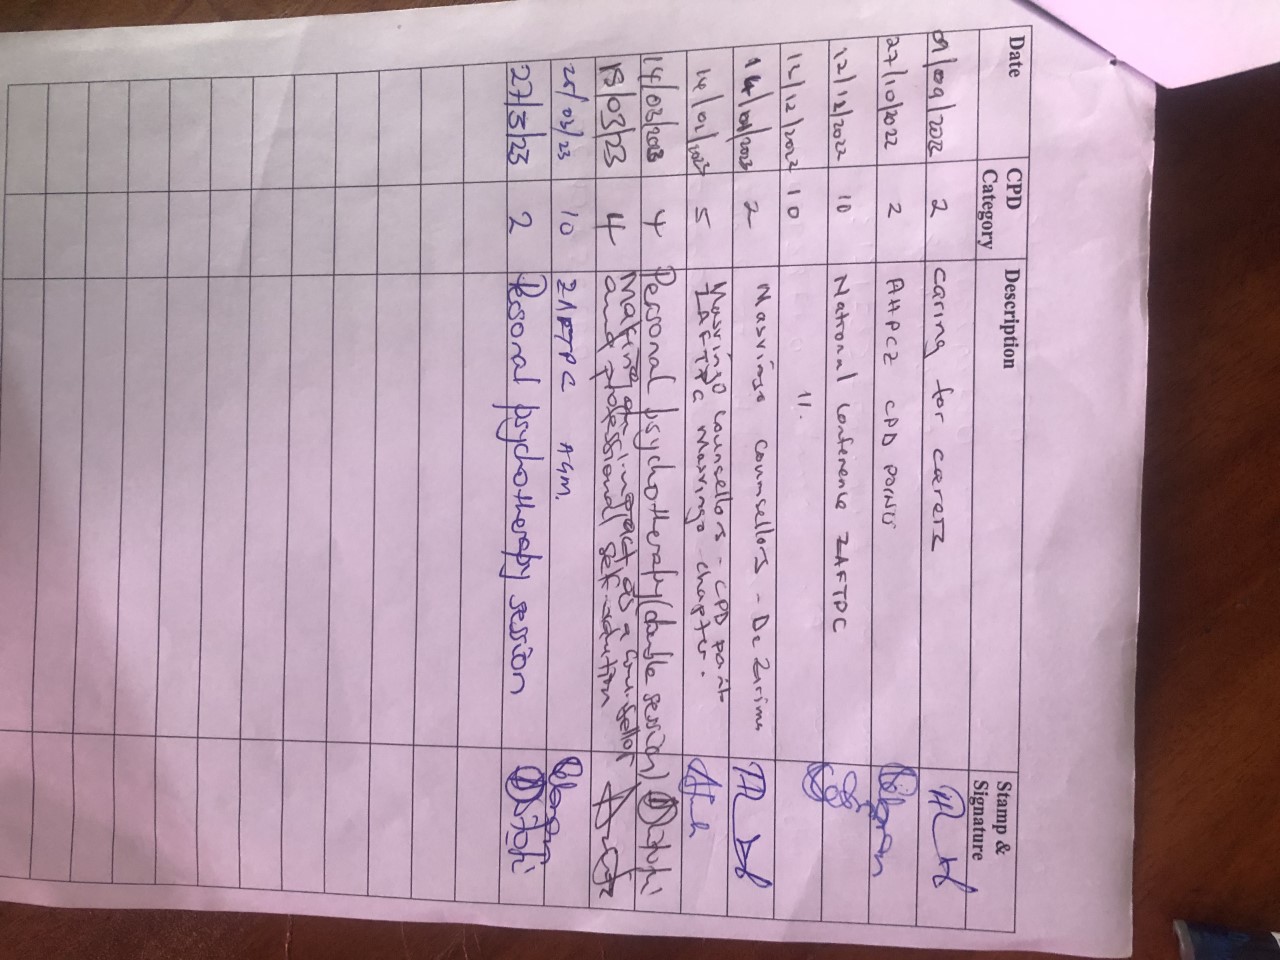 Date CPD Category Description Stamp & Signature
09/2022 2 caring for carers
27/10/2022 2 AHPCZ CPD points
12/12/2022 10 National conference ZAFTPC
12/12/2022 10 11.
14/01/2023 2 Masvingo counsellors - De
14/02/2023 5 Masvingo counsellors - CPD point
ZAFTPC Masvingo chapter.
14/03/2023 4 Personal psychotherapy (double session)
18/03/23 4 Making an impact as a counsellor
and professional self
25/03/23 10 ZAFTPC AGM.
27/3/23 2 Personal psychotherapy session